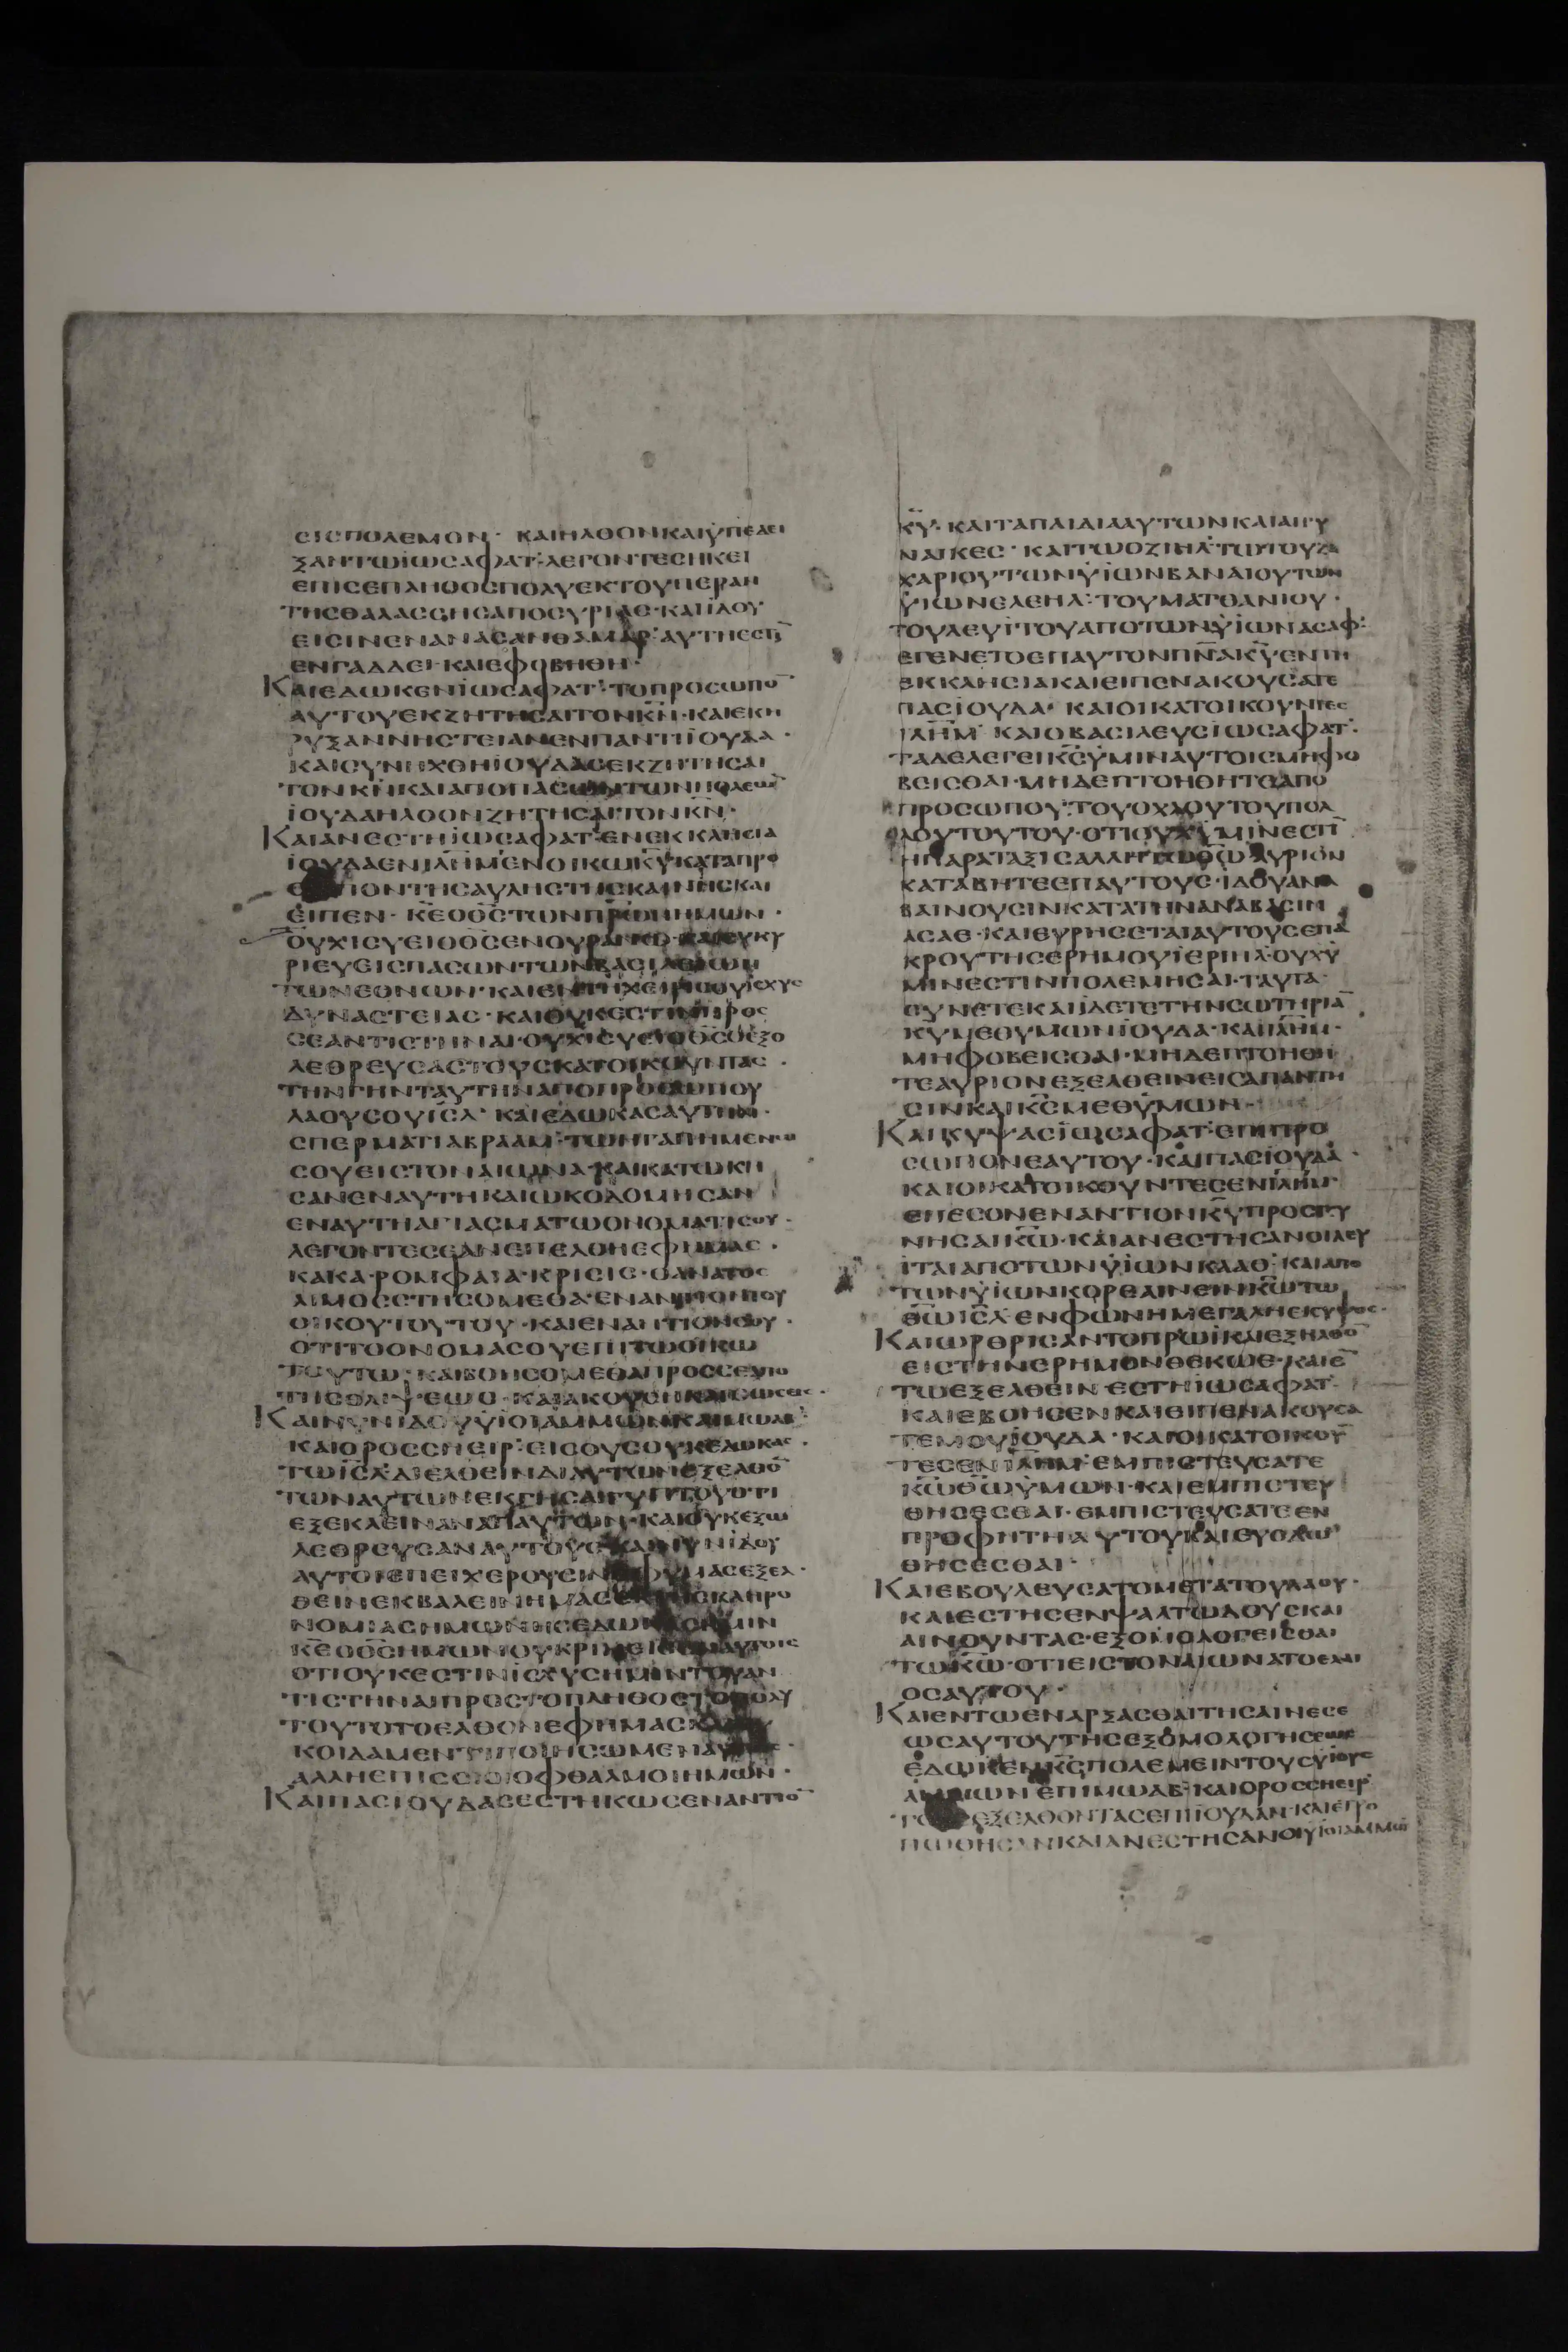 ΕΙΣΠΟΛΕΜΟΝ· ΚΑΙΗΛΘΟΝΚΑΙΫΠΕΔΕΙ
ΞΑΝΤΩΪΩΣΑΦΑΤ·ΛΕΓΟΝΤΕΣΗΚΕΙ
ΕΠΙΣΕΠΛΗΘΟΣΠΟΛΥΕΚΤΟΥΠΕΡΑΝ
ΤΗΣΘΑΛΑΣΣΗΣΑΠΟΣΥΡΙΑΣ·ΚΑΙΪΔΟΥ
ΕΙΣΙΝΕΝΑΝΑΣΑΝΘΑΜΑΡ·ΑΥΤΗΕΣΤΙ̅
ΕΝΓΑΔΔΕΙ·ΚΑΙΕΦΟΒΗΘΗ·
ΚΑΙΕΔΩΚΕΝΪΩΣΑΦΑΤ·ΤΟΠΡΟΣΩΠΟ̅
ΑΥΤΟΥΕΚΖΗΤΗΣΑΙΤΟΝΚ̅Ν̅·ΚΑΙΕΚΗ
ΡΥΞΑΝΝΗΣΤΕΙΑΝΕΝΠΑΝΤΙΪΟΥΔΑ·
ΚΑΙΣΥΝΗΧΘΗΪΟΥΔΑΣΕΚΖΗΤΗΣΑΙ
ΤΟΝΚ̅Ν̅ΚΑΙΑΠΟΠΑΣΩΝΤΩΝΠΟΛΕΩ̅
ΪΟΥΔΑΗΛΘΟΝΖΗΤΗΣΑΙΤΟΝΚ̅Ν̅·
ΚΑΙΑΝΕΣΤΗΪΩΣΑΦΑΤ·ΕΝΕΚΚΛΗΣΙΑ
ΪΟΥΔΑΕΝΙ̅Λ̅Η̅Μ̅·ΕΝΟΙΚΩΚ̅Υ̅ΚΑΤΑΠΡΟ
ΙΟΝΤΗΣΑΥΛΗΣΤΗΣΚΑΙΝΗΣΚΑΙ
ΕΙΠΕΝ· Κ̅Ε̅Ο̅Θ̅Σ̅ΤΩΝΠΡ̅Ω̅Ν̅ΗΜΩΝ·
ΟΥΧΙΣΥΕΙΟΘ̅Σ̅ΕΝΟΥΡΑΝΩ·ΚΑΙΣΥΚΥ
ΡΙΕΥΕΙΣΠΑΣΩΝΤΩΝΒΑΣΙΛΕΙΩΝ
ΤΩΝΕΘΝΩΝ·ΚΑΙΕΝΤΗΧΕΙΡΙΣΟΥΪΣΧΥΣ
ΔΥΝΑΣΤΕΙΑΣ·ΚΑΙΟΥΚΕΣΤΙΝΠΡΟΣ
ΣΕΑΝΤΙΣΤΗΝΑΙ·ΟΥΧΙΣΥΕΙΟΘ̅Σ̅ΟΕΞΟ
ΛΕΘΡΕΥΣΑΣΤΟΥΣΚΑΤΟΙΚΟΥΝΤΑΣ·
ΤΗΝΓΗΝΤΑΥΤΗΝΑΠΟΠΡΟΣΩΠΟΥ
ΛΑΟΥΣΟΥΙ̅Σ̅Λ̅· ΚΑΙΕΔΩΚΑΣΑΥΤΗΝ·
ΣΠΕΡΜΑΤΙΑΒΡΑΑΜ·ΤΩΗΓΑΠΗΜΕΝΩ
ΣΟΥΕΙΣΤΟΝΑΙΩΝΑ·ΚΑΙΚΑΤΩΚΗ
ΣΑΝΕΝΑΥΤΗΚΑΙΩΚΟΔΟΜΗΣΑΝ
ΕΝΑΥΤΗΑΓΙΑΣΜΑΤΩΟΝΟΜΑΤΙΣΟΥ·
ΛΕΓΟΝΤΕΣΕΑΝΕΠΕΛΘΗΕΦΗΜΑΣ·
ΚΑΚΑ·ΡΟΜΦΑΙΑ·ΚΡΙΣΙΣ·ΘΑΝΑΤΟΣ
ΛΙΜΟΣΣΤΗΣΟΜΕΘΑ·ΕΝΑΝΤΙΟΝΤΟΥ
ΟΙΚΟΥΤΟΥΤΟΥ·ΚΑΙΕΝΑΝΤΙΟΝΣΟΥ·
ΟΤΙΤΟΟΝΟΜΑΣΟΥΕΠΙΤΩΟΙΚΩ
ΤΟΥΤΩ·ΚΑΙΒΟΗΣΟΜΕΘΑΠΡΟΣΣΕΑΠΟ
ΤΗΣΘΛΙΨΕΩΣ·ΚΑΙΑΚΟΥΣΗΚΑΙΣΩΣΕΙΣ·
ΚΑΙΝΥΝΪΔΟΥΫΙΟΙΑΜΜΩΝΚΑΙΜΩΑΒ·
ΚΑΙΟΡΟΣΣΗΕΙΡ·ΕΙΣΟΥΣΟΥΚΕΔΩΚΑΣ·
ΤΩΙ̅Σ̅Λ̅ΔΙΕΛΘΕΙΝΔΙΑΥΤΩΝΕΞΕΛΘΟ̅
ΤΩΝΑΥΤΩΝΕΚΓΗΣΑΙΓΥΠΤΟΥΟΤΙ
ΕΞΕΚΛΕΙΝΑΝΑΠΑΥΤΩΝ·ΚΑΙΟΥΚΕΞΩ
ΛΕΘΡΕΥΣΑΝΑΥΤΟΥΣΚΑΙΝΥΝΪΔΟΥ
ΑΥΤΟΙΕΠΕΙΧΕΡΟΥΣΙΝ ΜΑΣΕΞΕΛ·
ΘΕΙΝΕΚΒΑΛΕΙΝΗΜΑΣ ΚΛΗΡΟ
ΝΟΜΙΑΣΗΜΩΝΗΣΕΔΩΚΑΣΗΜΙΝ
Κ̅Ε̅Ο̅Θ̅Σ̅ΗΜΩΝΟΥΚΡΙΝΕΙΣΕΝΑΥΤΟΙΣ
ΟΤΙΟΥΚΕΣΤΙΝΪΣΧΥΣΗΜΙΝΤΟΥΑΝ
ΤΙΣΤΗΝΑΙΠΡΟΣΤΟΠΛΗΘΟΣΤΟΠΟΛΥ
ΤΟΥΤΟΤΟΕΛΘΟΝΕΦΗΜΑΣ
ΚΟΙΔΑΜΕΝΤΙΠΟΙΗΣΩΜΕΝ
ΑΛΛΗΕΠΙΣΟΙΟΙΟΦΘΑΛΜΟΙΗΜΩΝ·
ΚΑΙΠΑΣΪΟΥΔΑΣΕΣΤΗΚΩΣΕΝΑΝΤΙΟ̅
Κ̅Υ̅· ΚΑΙΤΑΠΑΙΔΙΑΑΥΤΩΝΚΑΙΑΙΓΥ
ΝΑΙΚΕΣ· ΚΑΙΤΩΟΖΙΗΛ·ΤΩΤΟΥΖΑ
ΧΑΡΙΟΥΤΩΝΫΙΩΝΒΑΝΑΙΟΥΤΩΝ
ΫΙΩΝΕΛΕΗΛ·ΤΟΥΜΑΤΘΑΝΙΟΥ·
ΤΟΥΛΕΥΪΤΟΥΑΠΟΤΩΝΫΙΩΝΑΣΑΦ·
ΕΓΕΝΕΤΟΕΠΑΥΤΟΝΠ̅Ν̅Α̅Κ̅Υ̅ΕΝΤΗ
ΕΚΚΛΗΣΙΑΚΑΙΕΙΠΕΝΑΚΟΥΣΑΤΕ
ΠΑΣΪΟΥΔΑ· ΚΑΙΟΙΚΑΤΟΙΚΟΥΝΤΕΣ
Ι̅Λ̅Η̅Μ̅· ΚΑΙΟΒΑΣΙΛΕΥΣΪΩΣΑΦΑΤ·
ΤΑΔΕΛΕΓΕΙΚ̅Σ̅ΫΜΙΝΑΥΤΟΙΣΜΗΦΟ
ΒΕΙΣΘΑΙ·ΜΗΔΕΠΤΟΗΘΗΤΕΑΠΟ
ΠΡΟΣΩΠΟΥ·ΤΟΥΟΧΛΟΥΤΟΥΠΟΛ
ΛΟΥΤΟΥΤΟΥ·ΟΤΙΟΥΧΫΜΙΝΕΣΤΙ̅
ΗΠΑΡΑΤΑΞΙΣΑΛΛΗΤΩΘ̅Ω̅ΑΥΡΙΟΝ
ΚΑΤΑΒΗΤΕΕΠΑΥΤΟΥΣ·ΪΔΟΥΑΝΑ
ΒΑΙΝΟΥΣΙΝΚΑΤΑΤΗΝΑΝΑΒΑΣΙΝ
ΑΣΑΕ·ΚΑΙΕΥΡΗΣΕΤΑΙΑΥΤΟΥΣΕΠΑ
ΚΡΟΥΤΗΣΕΡΗΜΟΥΪΕΡΙΗΛ·ΟΥΧΫ
ΜΙΝΕΣΤΙΝΠΟΛΕΜΗΣΑΙ·ΤΑΥΤΑ
ΣΥΝΕΤΕΚΑΙΪΔΕΤΕΤΗΝΣΩΤΗΡΙΑ̅
Κ̅Υ̅ΜΕΘΥΜΩΝΪΟΥΔΑ·ΚΑΙΙ̅Λ̅Η̅Μ̅·
ΜΗΦΟΒΕΙΣΘΑΙ·ΜΗΔΕΠΤΟΗΘΗ
ΤΕΑΥΡΙΟΝΕΞΕΛΘΕΙΝΕΙΣΑΠΑΝΤΗ
ΣΙΝΚΑΙΚ̅Σ̅ΜΕΘΫΜΩΝ·
ΚΑΙΚΥΨΑΣΪΩΣΑΦΑΤ·ΕΠΙΠΡΟ
ΣΩΠΟΝΕΑΥΤΟΥ·ΚΑΙΠΑΣΪΟΥΔΑ·
ΚΑΙΟΙΚΑΤΟΙΚΟΥΝΤΕΣΕΝΙ̅Λ̅Η̅Μ̅·
ΕΠΕΣΟΝΕΝΑΝΤΙΟΝΚ̅Υ̅ΠΡΟΣΚΥ
ΝΗΣΑΙΚ̅Ω̅·ΚΑΙΑΝΕΣΤΗΣΑΝΟΙΛΕΥ
ΪΤΑΙΑΠΟΤΩΝΫΙΩΝΚΑΑΘ·ΚΑΙΑΠΟ
ΤΩΝΫΙΩΝΚΟΡΕΑΙΝΕΙΝΚ̅Ω̅ΤΩ
Θ̅Ω̅Ι̅Σ̅Λ̅·ΕΝΦΩΝΗΜΕΓΑΛΗΕΚΥΨΟΣ·
ΚΑΙΩΡΘΡΙΣΑΝΤΟΠΡΩΪΚΑΙΕΞΗΛΘΟ̅
ΕΙΣΤΗΝΕΡΗΜΟΝΘΕΚΩΕ·ΚΑΙΕ̅
ΤΩΕΞΕΛΘΕΙΝ·ΕΣΤΗΪΩΣΑΦΑΤ·
ΚΑΙΕΒΟΗΣΕΝΚΑΙΕΙΠΕΝΑΚΟΥΣΑ
ΤΕΜΟΥΪΟΥΔΑ·ΚΑΙΟΙΚΑΤΟΙΚΟΥ̅
ΤΕΣΕΝΙ̅Λ̅Η̅Μ̅·ΕΜΠΙΣΤΕΥΣΑΤΕ
Κ̅Ω̅Θ̅Ω̅ΫΜΩΝ·ΚΑΙΕΜΠΙΣΤΕΥ
ΘΗΣΕΣΘΑΙ·ΕΜΠΙΣΤΕΥΣΑΤΕΕΝ
ΠΡΟΦΗΤΗΑΥΤΟΥΚΑΙΕΥΟΔΩ
ΘΗΣΕΣΘΑΙ·
ΚΑΙΕΒΟΥΛΕΥΣΑΤΟΜΕΤΑΤΟΥΛΑΟΥ·
ΚΑΙΕΣΤΗΣΕΝΨΑΛΤΩΔΟΥΣΚΑΙ
ΑΙΝΟΥΝΤΑΣ·ΕΞΟΜΟΛΟΓΕΙΣΘΑΙ
ΤΩΚ̅Ω̅·ΟΤΙΕΙΣΤΟΝΑΙΩΝΑΤΟΕΛΕ
ΟΣΑΥΤΟΥ·
ΚΑΙΕΝΤΩΕΝΑΡΞΑΣΘΑΙΤΗΣΑΙΝΕΣΕ
ΩΣΑΥΤΟΥΤΗΣΕΞΟΜΟΛΟΓΗΣΕΩΣ
ΕΔΩΚΕΝΚ̅Σ̅ΠΟΛΕΜΕΙΝΤΟΥΣΥΪΟΥΣ
ΑΜΜΩΝΕΠΙΜΩΑΒ·ΚΑΙΟΡΟΣΣΗΕΙΡ·
ΕΞΕΛΘΟΝΤΑΣΕΠΙΪΟΥΔΑΝ·ΚΑΙΕΤΡΟ
ΠΩΘΗΣΑΝΚΑΙΑΝΕΣΤΗΣΑΝΟΙΥΪΟΙΑΜΜΩ̅